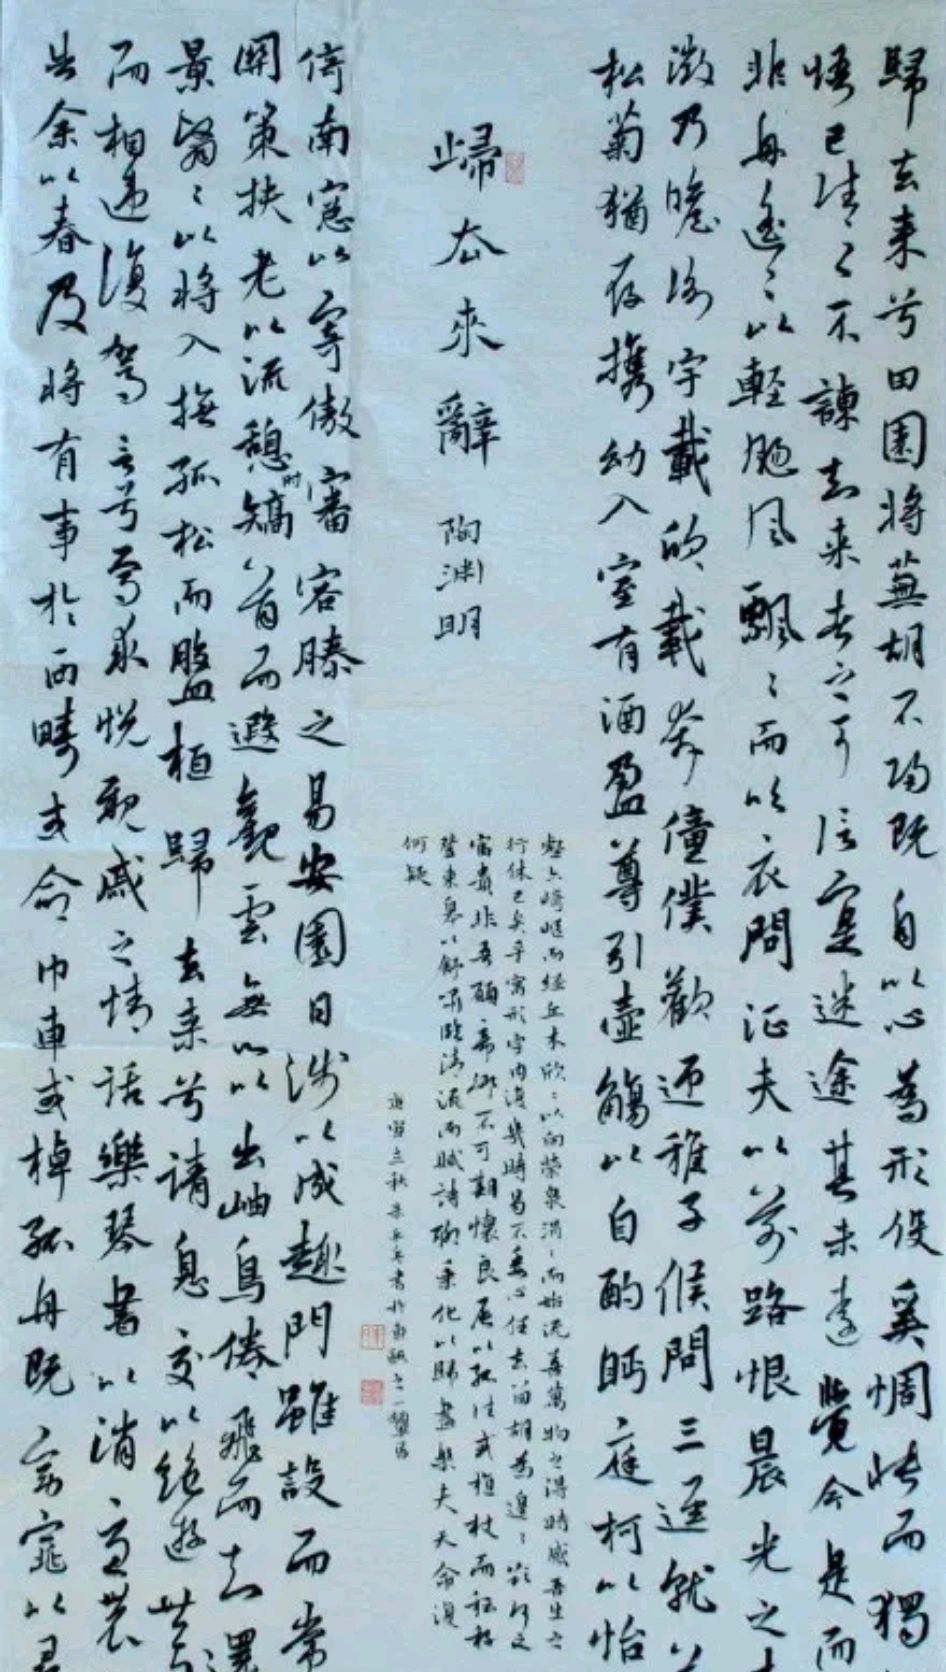 歸去来兮田園將蕪胡不歸既自以心為形役奚惆悵而獨
悟已往之不諫知来者之可追寔迷途其未遠覺今是而
非舟遙〻以輕颺風飄〻而吹衣問征夫以前路恨晨光之
微乃瞻衡宇載欣載奔僮僕歡迎稚子候門三逕就
松菊猶存携幼入室有酒盈尊引壺觴以自酌眄庭柯以怡
壑亦崎嶇而經丘木欣〻以向榮泉涓〻而始流善萬物之得時感吾生之
行休已矣乎寓形宇内復幾時曷不委心任去留胡為遑〻欲何之
富貴非吾願帝鄉不可期懷良辰以孤往或植杖而耘耔
登東皋以舒嘯臨清流而賦詩聊乘化以歸盡樂夫天命復
何疑
歸去來辭 陶渊明
庚寅立秋
倚南窓以寄傲審容膝之易安園日涉以成趣門雖設而常
關策扶老以流憩時矯首而遐觀雲無心以出岫鳥倦飛而知還
景翳〻以將入撫孤松而盤桓歸去来兮請息交以絕遊世
而相違復駕言兮焉求悅親戚之情話樂琴書以消憂農
告余以春及將有事於西疇或命巾車或棹孤舟既窈窕以尋